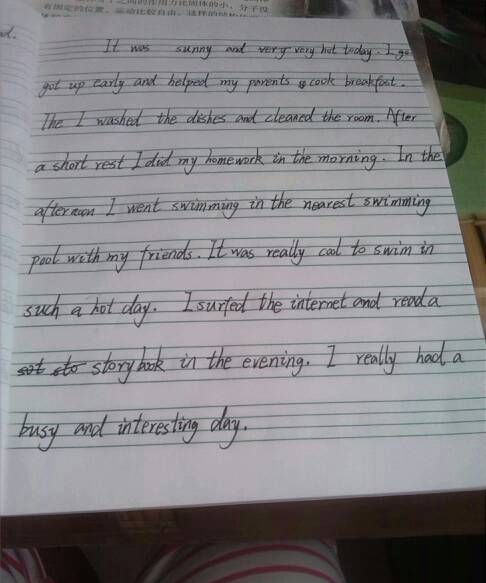 有固定的位置，运动比较自由，这样的结构
d.
It was sunny and very very hot today. I go
got up early and helped my parents cook breakfast.
The I washed the dishes and cleaned the room. After
a short rest I did my homework in the morning. In the
afternoon I went swimming in the nearest swimming
pool with my friends. It was really cool to swim in
such a hot day. I surfed the internet and read a
storybook in the evening. I really had a
busy and interesting day.